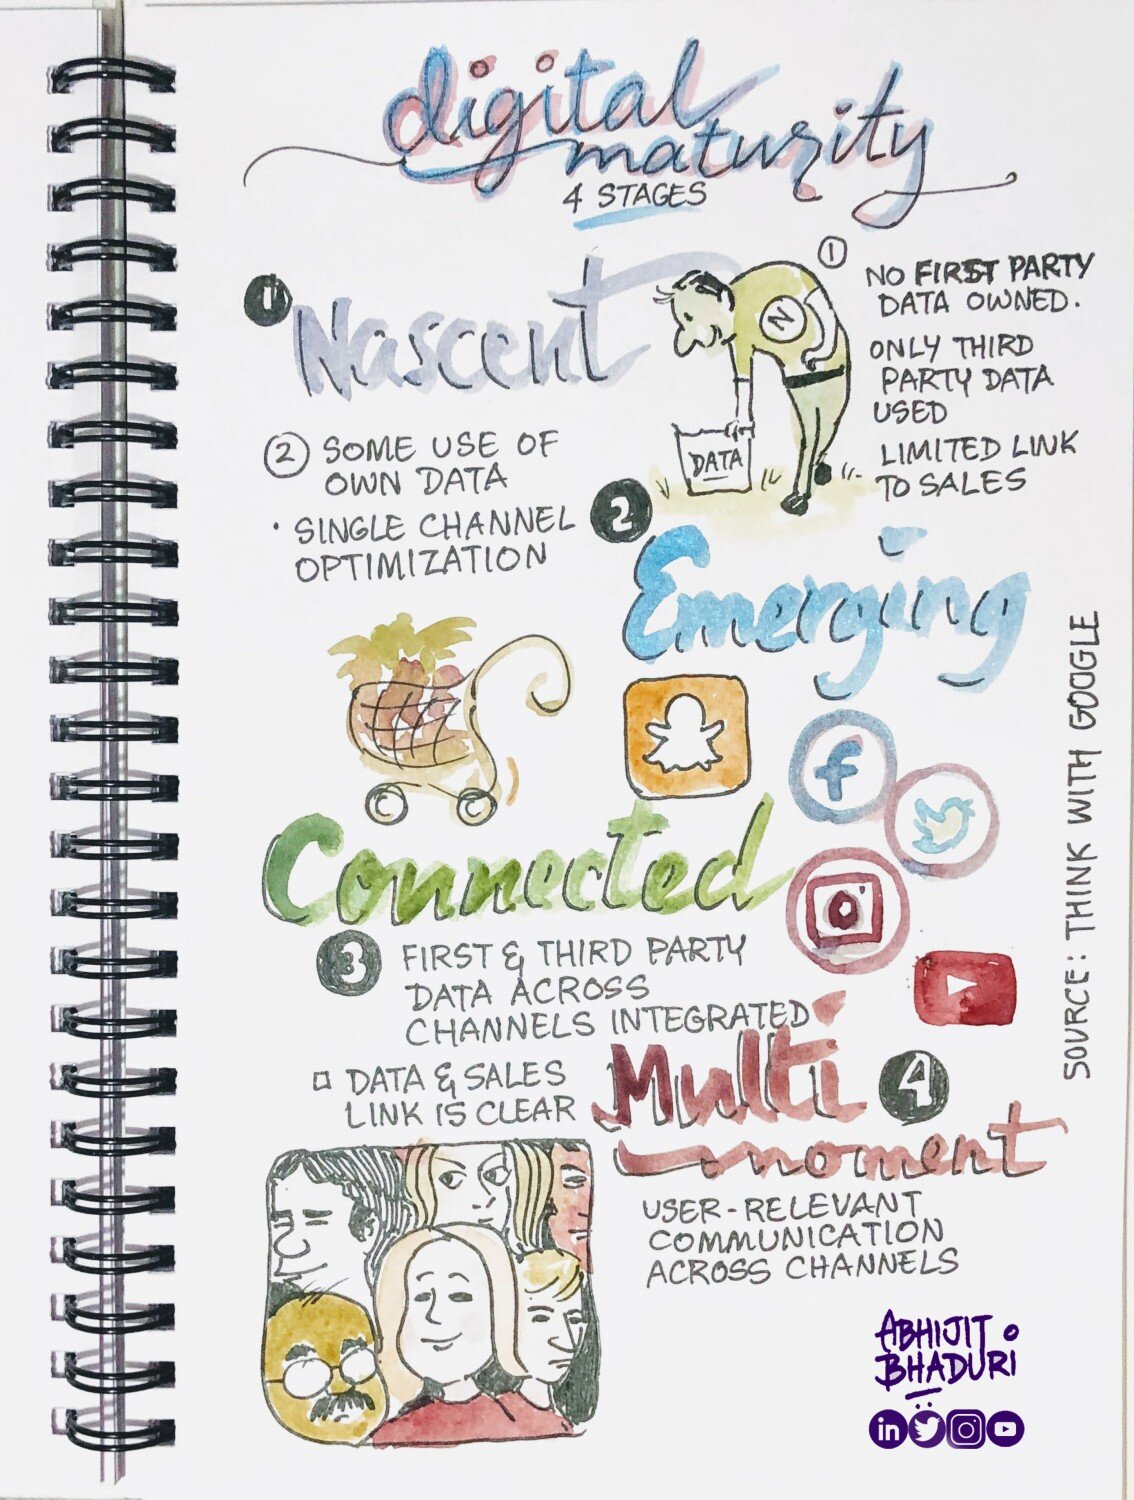 digital
maturity
4 STAGES
1 Nascent
N
DATA
1
NO FIRST PARTY
DATA OWNED.
ONLY THIRD
PARTY DATA
USED
LIMITED LINK
TO SALES
2 SOME USE OF
OWN DATA
· SINGLE CHANNEL
OPTIMIZATION
2
Emerging
f
Connected
3
FIRST & THIRD PARTY
DATA ACROSS
CHANNELS INTEGRATED
DATA & SALES
LINK IS CLEAR
Multi 4
moment
USER-RELEVANT
COMMUNICATION
ACROSS CHANNELS
SOURCE: THINK WITH GOOGLE
ABHIJIT
BHADURI
in